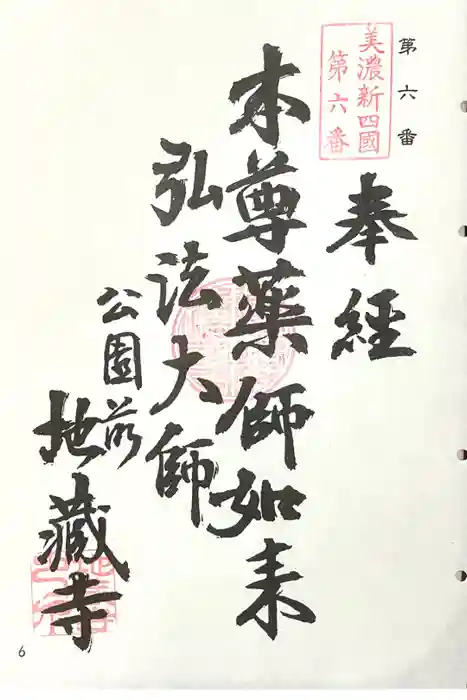 第六番
美濃新四國
第六番
奉經
本尊薬師如来
弘法大師
公園前
地藏寺
6